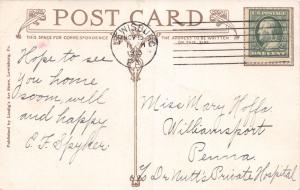 POST CARD
THIS SPACE FOR CORRESPONDENCE
THE ADDRESS TO BE WRITTEN
ON THIS SIDE
LEWISBURG
NOV
Hope to see
You home
soon, well
and happy
E. F. Spyker
Miss Mary Hoffa
Williamsport
Penna
℅ Dr Nutt's Private Hospital